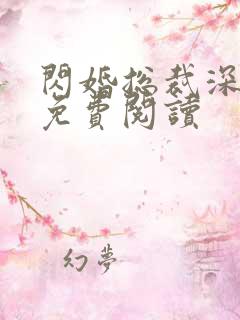 閃婚总裁深
免費閱讀
幻夢